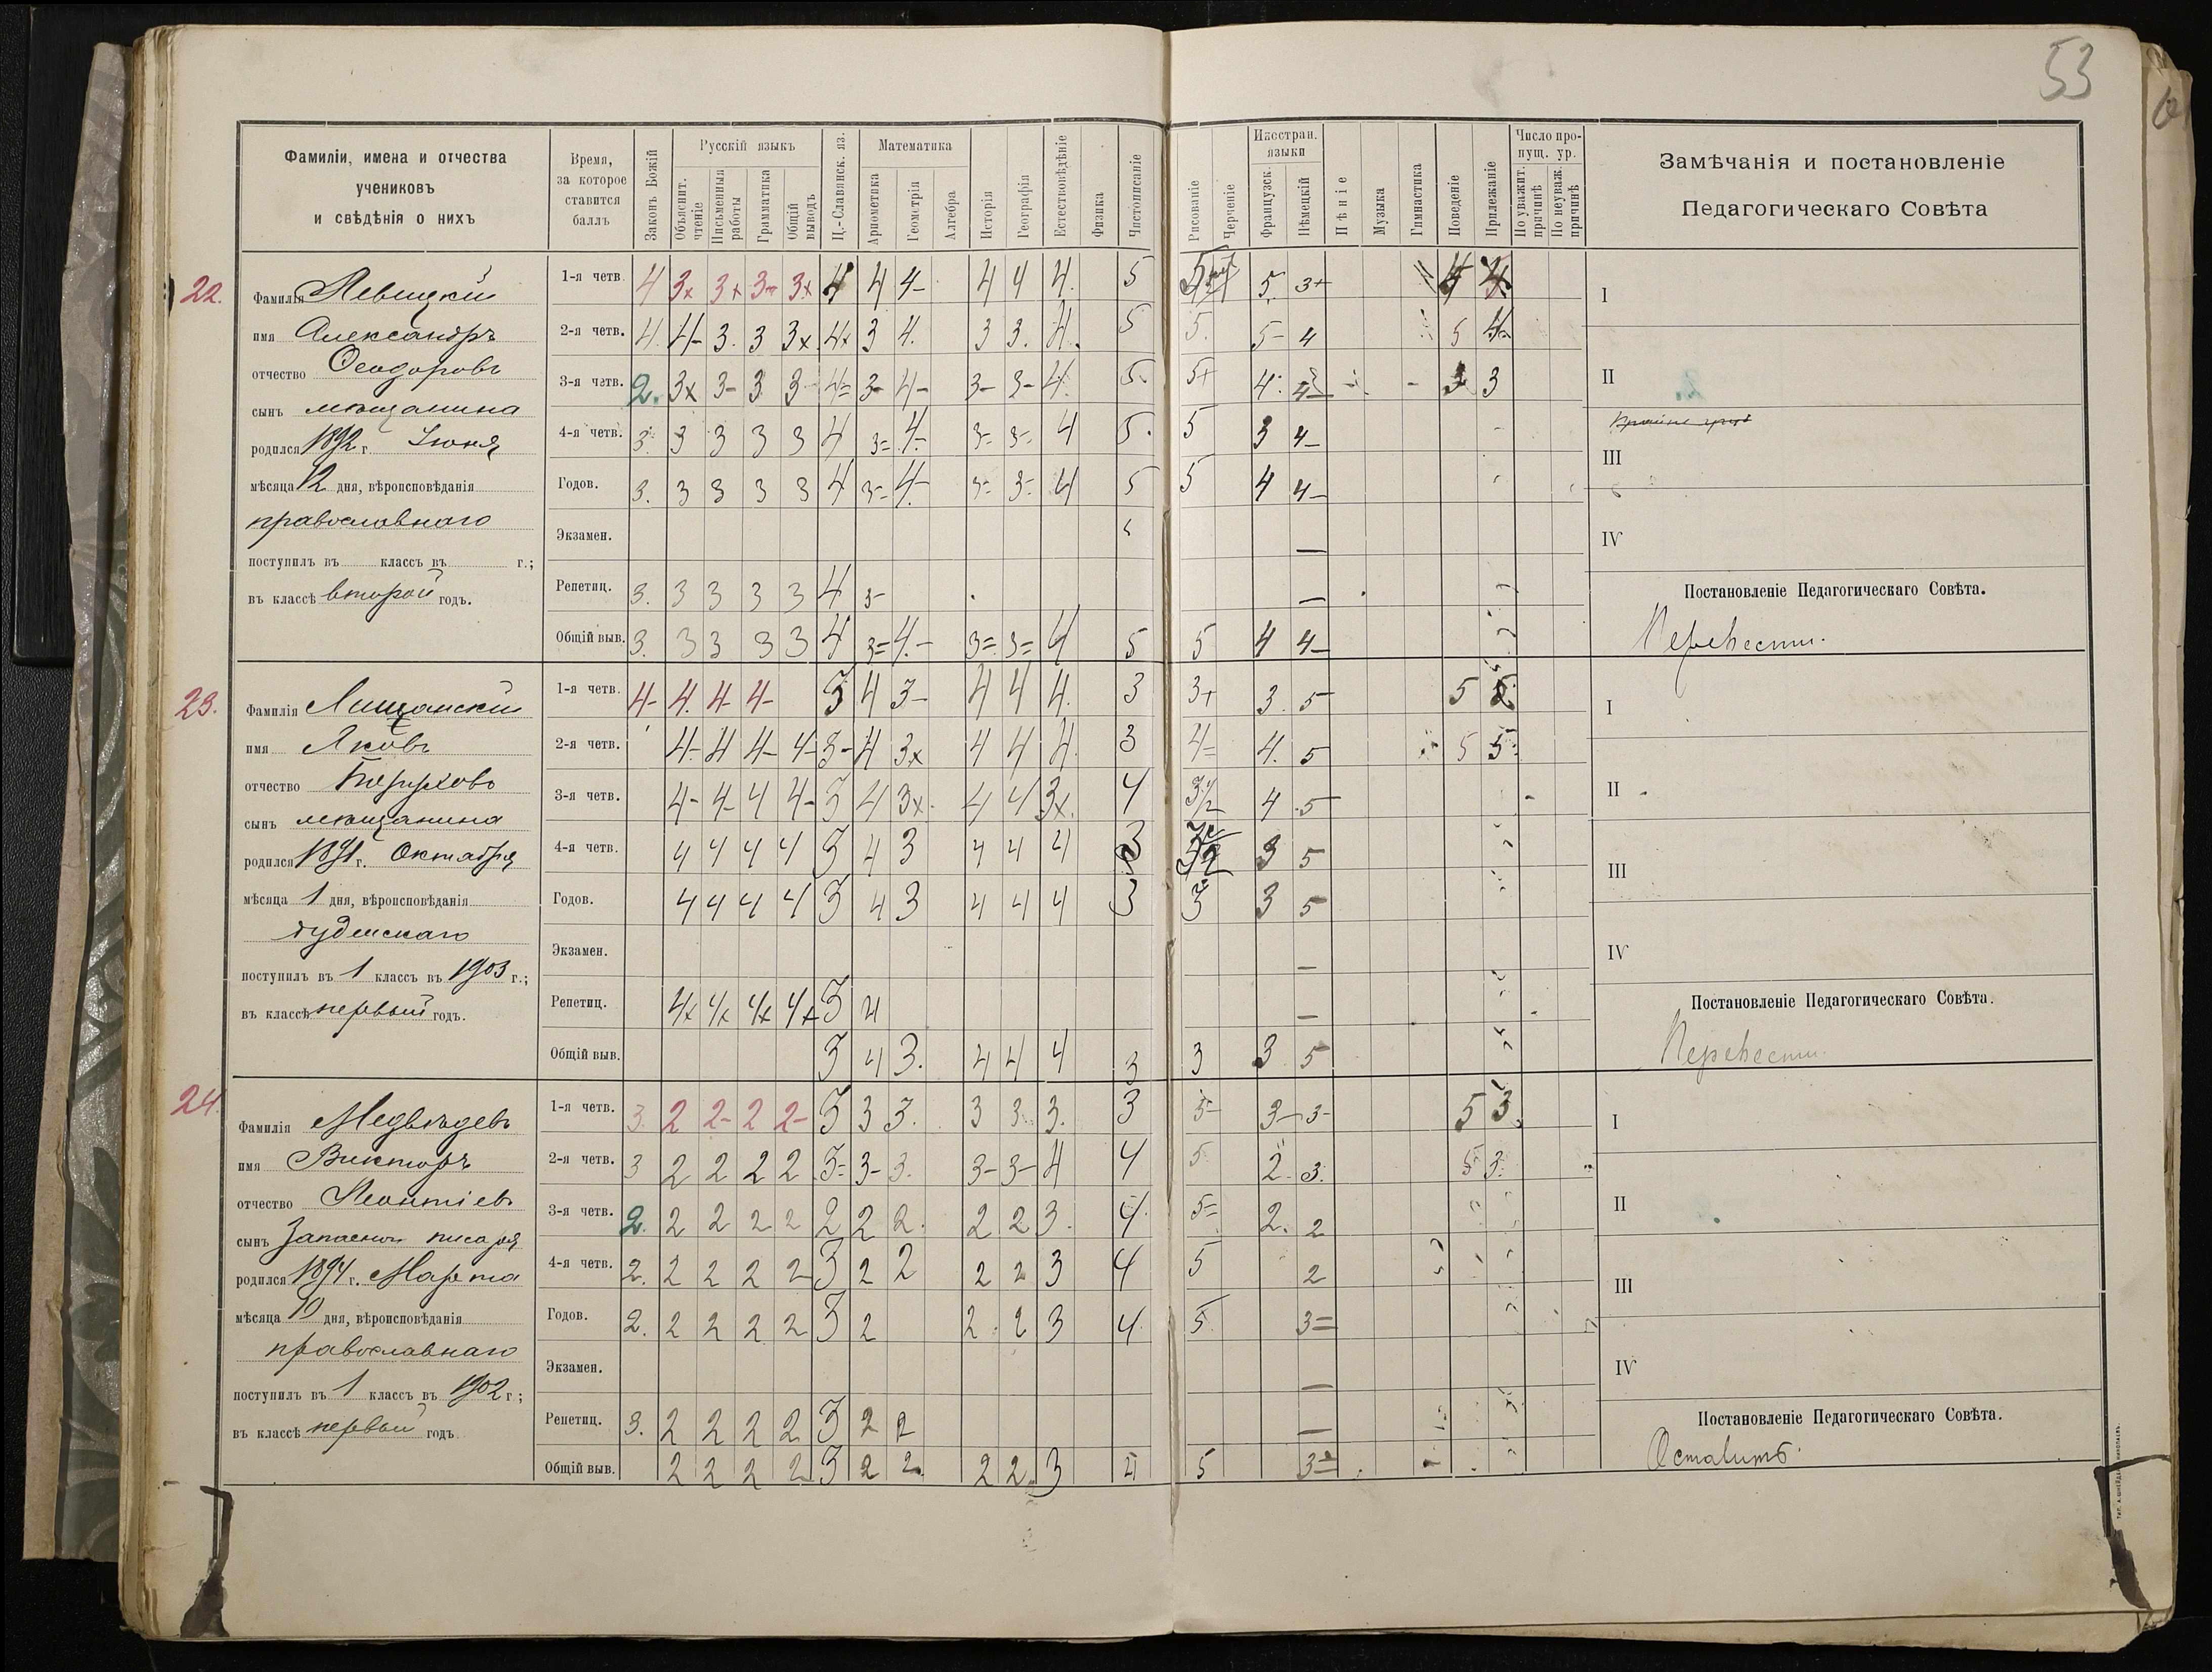 53
Фамиліи, имена и отчества
учениковъ
и свѣдѣнія о нихъ
Время,
за которое
ставится
баллъ
Законъ Божій
Русскій языкъ
Объяснит. чтеніе
Письменныя работы
Грамматика
Общій выводъ
Ц.-Славянск. яз.
Математика
Ариѳметика
Геометрія
Алгебра
Исторія
Географія
Естествовѣдѣніе
Физика
Чистописаніе
Рисованіе
Черченіе
Иностран. языки
Французск.
Нѣмецкій
Пѣніе
Музыка
Гимнастика
Поведеніе
Прилежаніе
Число пропущ. ур.
По уважит. причинѣ
По неуваж. причинѣ
Замѣчанія и постановленіе
Педагогическаго Совѣта
22.
Фамилія Левицкій
имя Александръ
отчество Ѳеодоровъ
сынъ мѣщанина
родился 1892 г. Іюня
мѣсяца 12 дня, вѣроисповѣданія
православнаго
поступилъ въ классъ въ г.;
въ классѣ второй годъ.
1-я четв. 4 3x 3x 3- 3x 4 4 4- 4 4 4. 5 5. 3+ 4 4
2-я четв. 4. 4- 3. 3 3x 4x 3 4. 3 3. 4. 5 5. 5- 4 5 4-
3-я четв. 2. 3x 3- 3 3- 4= 3- 4- 3- 3- 4. 5. 5+ 4. 4- 3 3
4-я четв. 3. 3 3 3 3 4 3= 4- 3- 3-. 4 5. 5 3 4-
Годов. 3. 3 3 3 3 4 3- 4- 3- 3- 4 5 5 4 4-
Экзамен. —
Репетиц. 3. 3 3 3 3 4 3- —
Общій выв. 3. 3 3 3 3 4 3= 4.- 3=. 3= 4 5 5 4 4-
I
II
III
IV
Постановленіе Педагогическаго Совѣта.
Перевести.
23.
Фамилія Лищанскій
имя Яковъ
отчество Боруховъ
сынъ мѣщанина
родился 1891 г. Октября
мѣсяца 1 дня, вѣроисповѣданія
іудейскаго
поступилъ въ 1 классъ въ 1903 г.;
въ классѣ первый годъ.
1-я четв. 4- 4. 4- 4- 3 4 3- 4 4 4. 3 3+ 3. 5 5 5
2-я четв. 4- 4 4- 4- 3- 4 3x 4 4 4. 3 4= 4. 5 5 5
3-я четв. 4- 4- 4 4- 3 4 3x. 4 4 3x. 4 4 5
4-я четв. 4 4 4 4 3 4 3 4 4 4 3 3 5
Годов. 4 4 4 4 3 4 3 4 4 4 3 3 3 5
Экзамен. —
Репетиц. 4x 4x 4x 4x 3 4 —
Общій выв. 3 4 3. 4 4 4 3 3 3 5
I
II
III
IV
Постановленіе Педагогическаго Совѣта.
Перевести.
24.
Фамилія Медвѣдев
имя Викторъ
отчество Леонтіев
сынъ Запасного писаря
родился 1894 г. Марта
мѣсяца 10 дня, вѣроисповѣданія
православнаго
поступилъ въ 1 классъ въ 1902 г;
въ классѣ первый годъ
1-я четв. 3. 2 2- 2 2- 3 3 3. 3 3. 3. 3 5- 3- 3- 5 3
2-я четв. 3 2 2 2 2 3= 3- 3. 3- 3- 4 4 5 2. 3. 5 3.
3-я четв. 2. 2 2 2 2 2 2 2. 2 2 3. 4. 5= 2. 2
4-я четв. 2. 2 2 2 2 3 2 2 2 2 3 4 5 2
Годов. 2. 2 2 2 2 3 2 2 2 3 4 5. 3=
Экзамен. —
Репетиц. 3. 2 2 2 2 3 2 2 —
Общій выв. 2 2 2 2 3 2 2. 2 2. 3 4 5 3=
I
II
III
IV
Постановленіе Педагогическаго Совѣта.
Оставить.